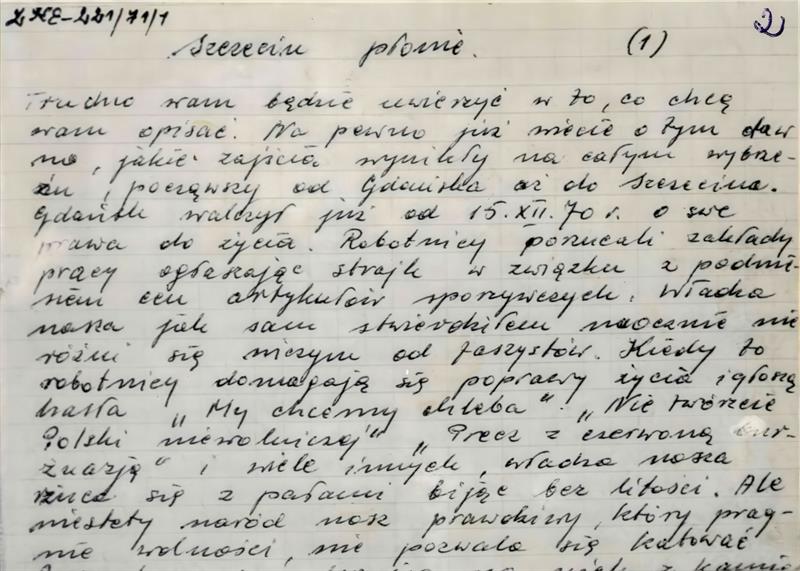 ZHE-221/71/1
2
Szczecin płonie. (1)
Trudno wam będzie uwierzyć w to, co chcą
wam opisać. Na pewno już wiecie o tym daw
no, jakie zajścia wynikły na całym wybrze-
żu, począwszy od Gdańska aż do Szczecina.
Gdańsk walczył już od 15.XII.70 r. o swe
prawa do życia. Robotnicy porzucali zakłady
pracy ogłaszając strajk w związku z podnie
sien cen artykułów spożywczych. Władza
nasza jak sam stwierdziłem naocznie nie
różni się niczym od faszystów. Kiedy to
robotnicy domagają się poprawy życia i głoszą
hasła „My chcemy chleba". „Nie twórzcie
Polski niewolniczej" „Precz z czerwoną bur-
żuazją" i wiele innych, władza nasza
rzuca się z pałami bijąc bez litości. Ale
niestety naród nasz prawdziwy, który prag-
nie wolności, nie pozwala się katować